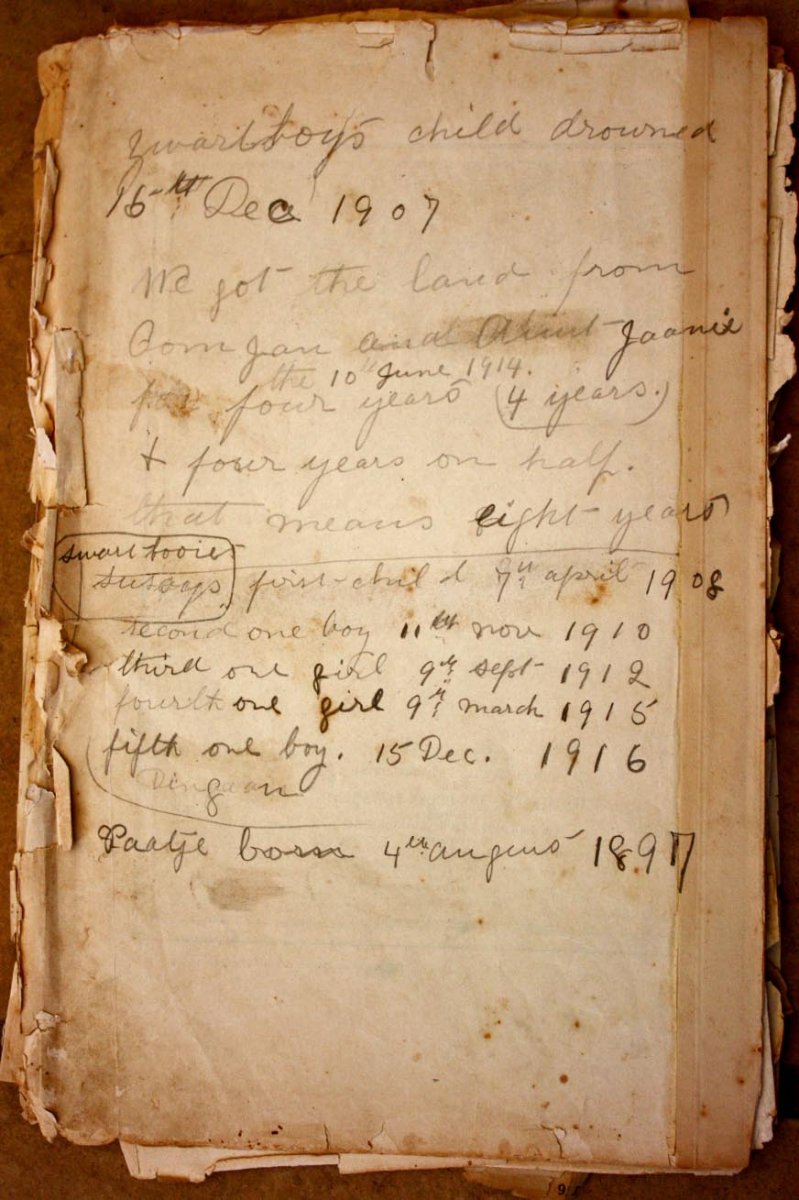 zwartboys child drowned
16th Dec 1907
We got the land from
Oom Jan and Aunt Jaanie
the 10th June 1914.
for four years (4 years.)
+ four years on half.
that means eight years
swartbooie
first child 7th april 1908
second one boy 11th nov 1910
third one girl 9th sept 1912
fourth one girl 9th march 1915
fifth one boy. 15 Dec. 1916
Dingaan
Paatje born 4th augus 1897